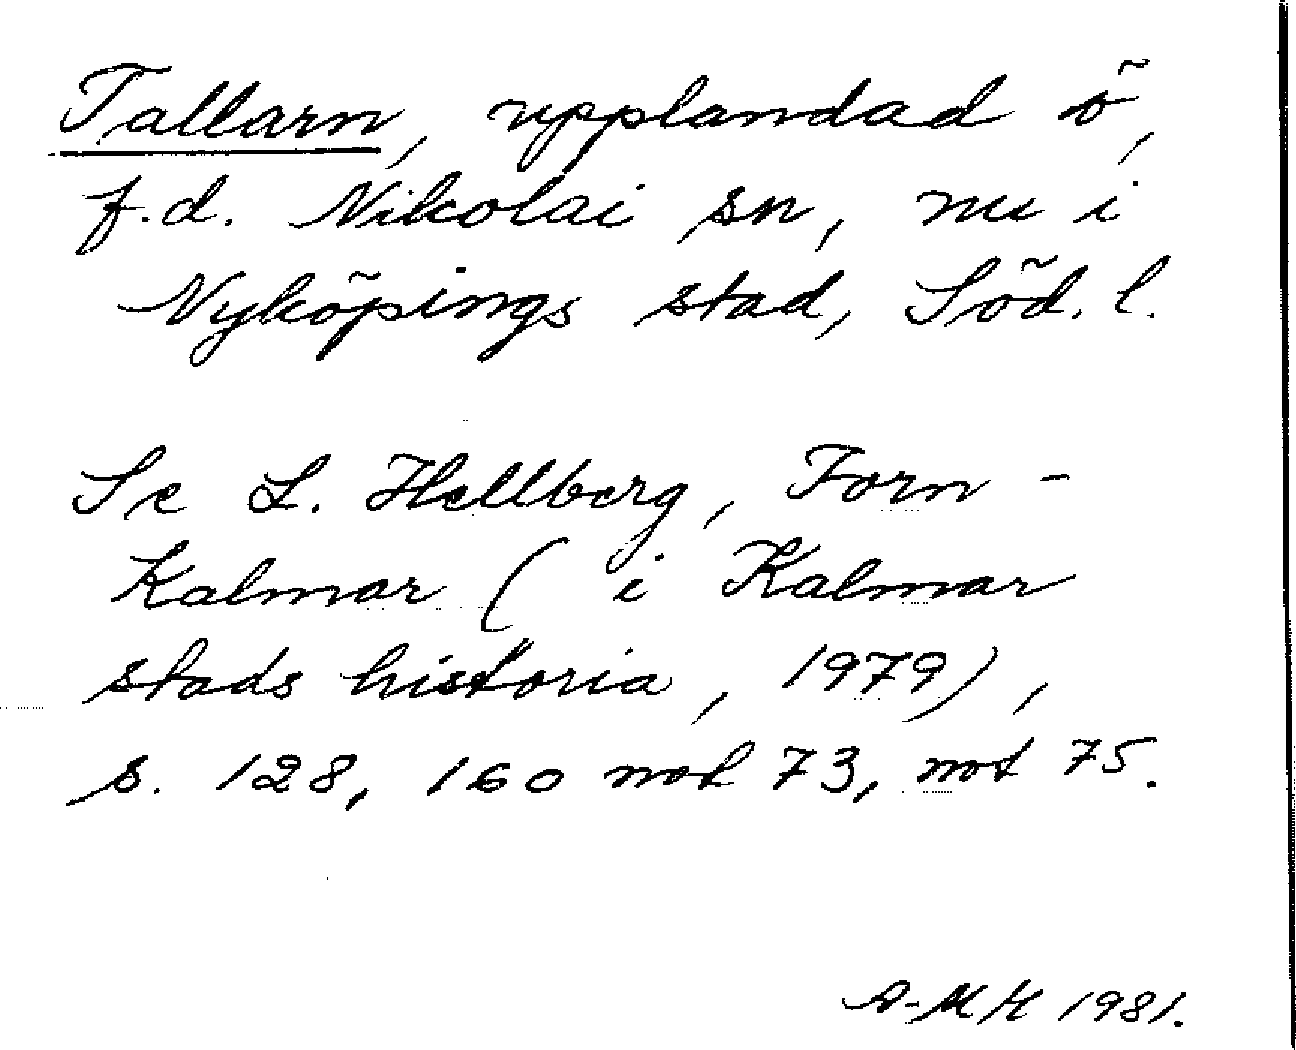 Tallarn, upplandad ö,
f.d. Nikolai sn, nu i
Nyköpings stad, Söd. l.
Se L. Hellberg, Forn-
Kalmar ( i Kalmar
stads historia, 1979),
s. 128, 160 not 73, not 75.
A-MH 1981.